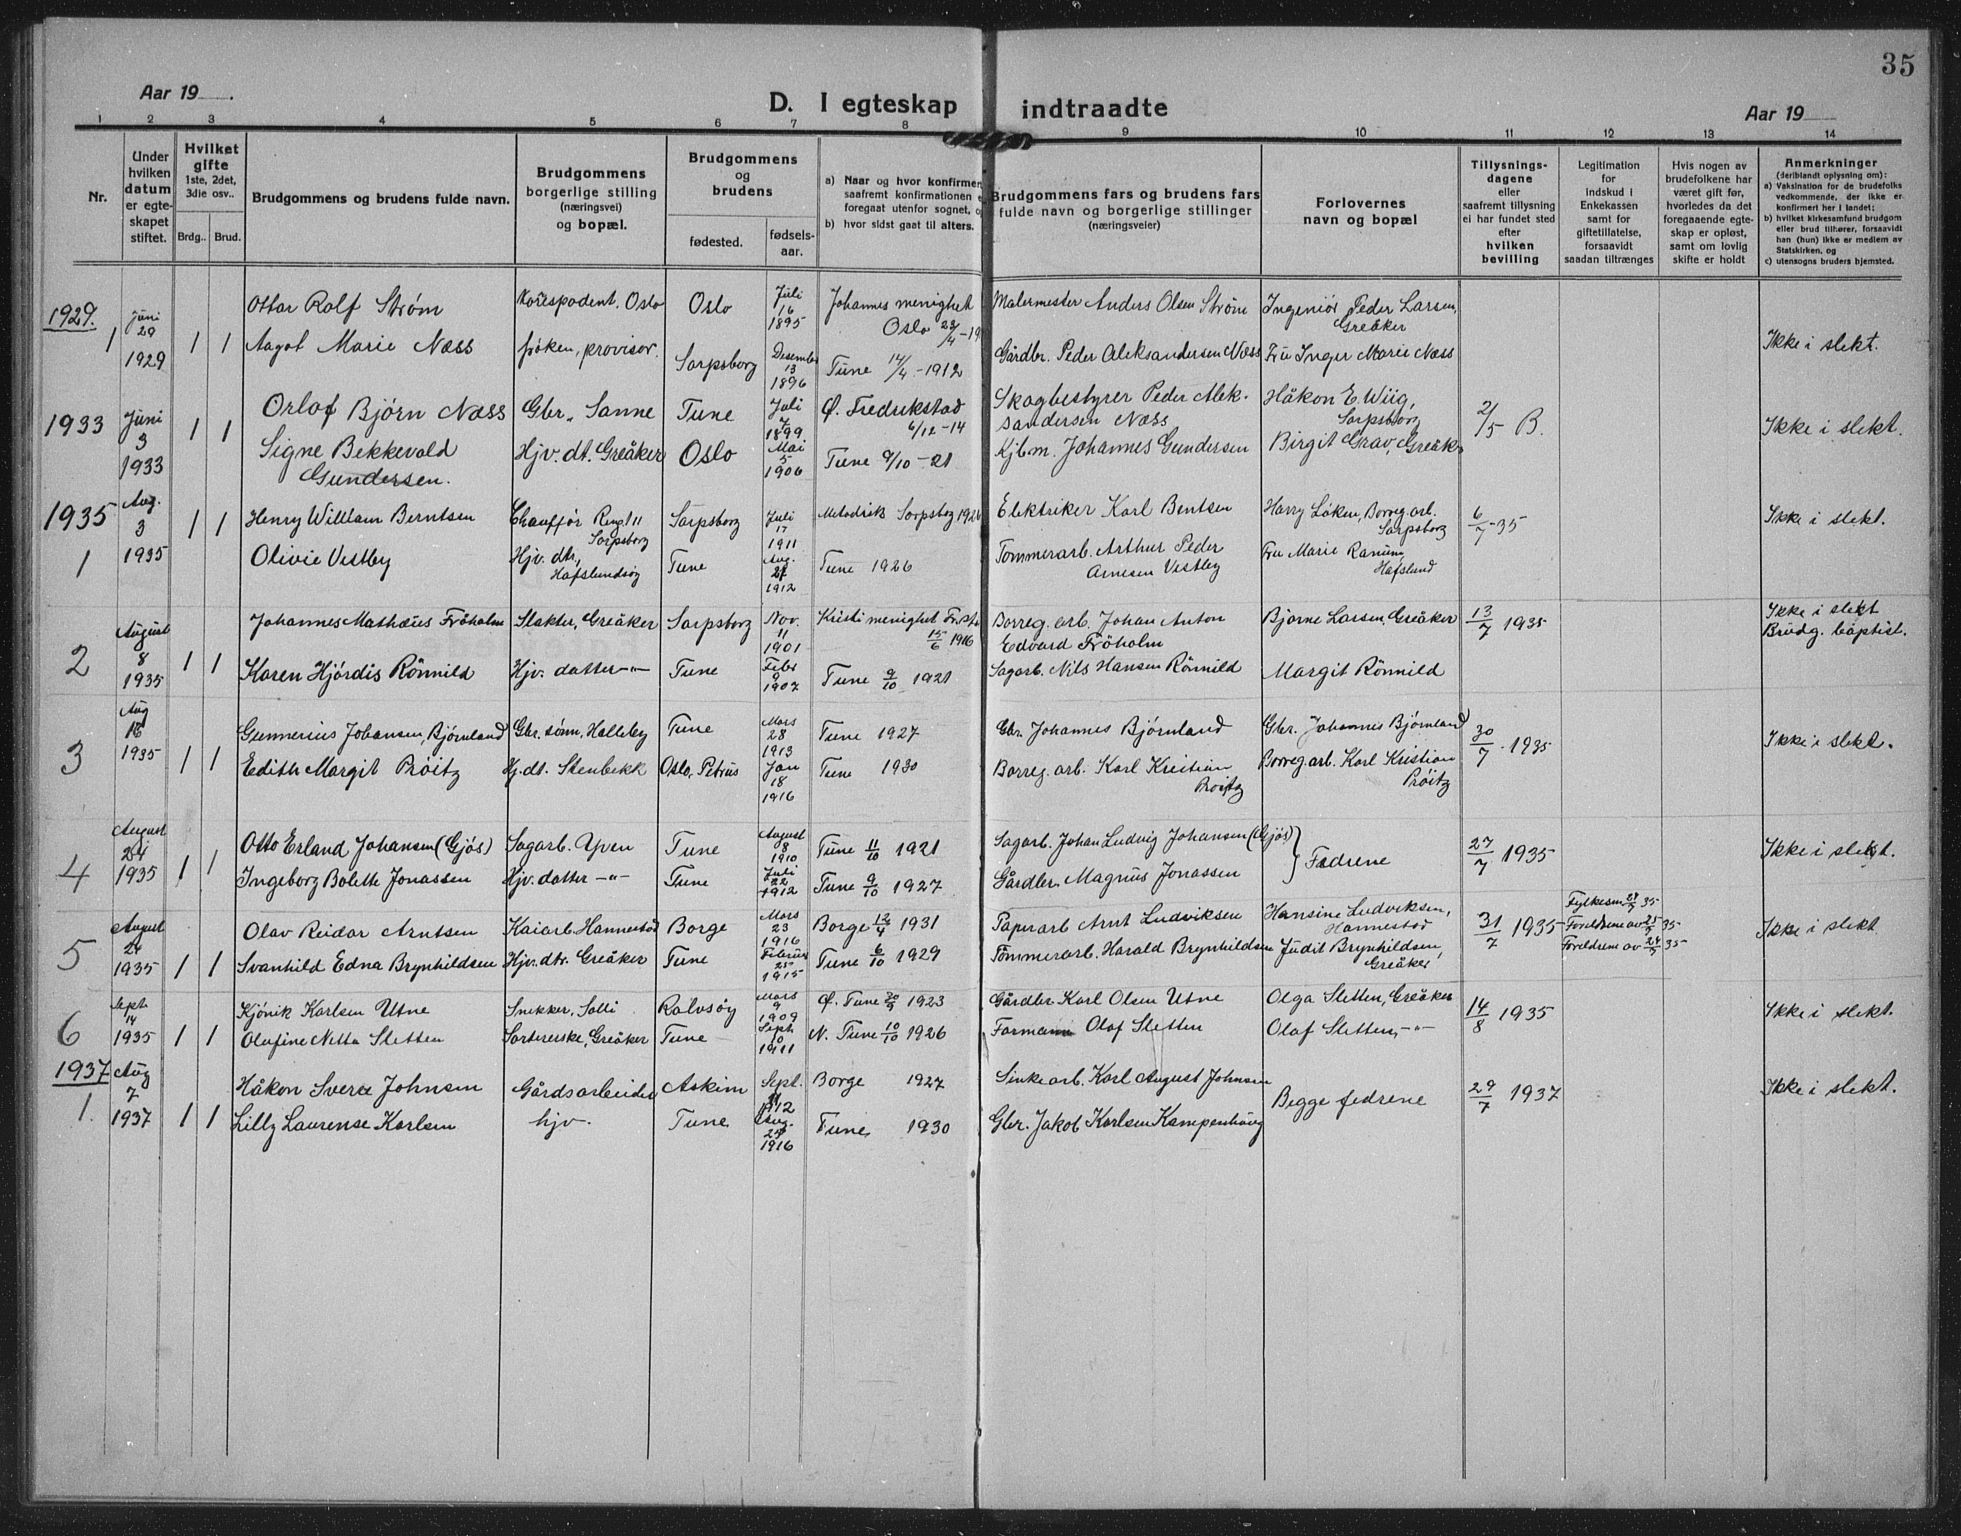 35
Aar 19
D. I egteskap indtraadte
Aar 19
1 2 3 4 5 6 7 8 9 10 11 12 13 14
Nr.
Under hvilken datum er egteskapet stiftet.
Hvilket gifte 1ste, 2det, 3die osv..
Brdg.. Brud.
Brudgommens og brudens fulde navn.
Brudgommens borgerlige stilling (næringsvei) og bopæl.
Brudgommens og brudens
fødested. fødselsaar.
a) Naar og hvor konfirmer
saafremt konfirmationen
foregaat utenfor sognet,
b) hvor sidst gaat til alters.
Brudgommens fars og brudens fars
fulde navn og borgerlige stillinger
(næringsveier)
Forlovernes
navn og bopæl
Tillysnings-
dagene
eller
saafremt tillysning
ei har fundet sted
efter
hvilken
bevilling
Legitimation
for
indskud i
Enkekassen
samt for
giftetillatelse,
forsaavidt
saadan tiltrænges
Hvis nogen av
brudefolkene har
været gift før,
hvorledes da det
foregaaende egte-
skap er opløst,
samt om lovlig
skifte er holdt
Anmerkninger
(deriblandt oplysning om):
a) Vaksination for de brudefolks
vedkommende, der ikke er
konfirmert her i landet;
b) hvilket kirkesamfund brudgom
eller brud tilhører, forsaavidt
han (hun) ikke er medlem av
Statskirken, og
c) utensogns bruders hjemsted.
1929. 1 Juni 29 1929 1 1
Ottar Rolf Strøm Korespodent, Oslo Oslo Juli 16 1895 Johannes menighet Oslo Malermester Anders Olsen Strøm Ingeniør Peder Larsen, Greåker
Aagot Marie Næss frøken, provisor. Sarpsborg Desember 13 1896 Tune 14/4-1912 Gårdbr. Peder Aleksandersen Næss Fru Inger Marie Næss Ikke i slekt.
1933 Juni 3 1933 1 1
Orlof Bjørn Næss Gbr. Sanne Tune Juli 7 1899 Ø. Fredrikstad 6/12-14 Skogbestyrer Peder Aleksandersen Næss Håkon E. Wiig, Sarpsborg 2/5 B. Ikke i slekt.
Signe Bekkevold Gundersen. Hjv. dt. Greåker Oslo Mai 5 1906 Tune 9/10-21 Kjbm. Johannes Gundersen Birgit Grav, Greåk
1935 1 Aug. 3 1935 1 1
Henry William Berntsen Chauffør Sarpsborg Sarpsborg Juli 17 1911 Metodisk Sarpsbog Elektriker Karl Bentsen Harry Løken, Borreg. arb. Sarpsborg 6/7-35 Ikke i slekt.
Olivie Vestby Hjv. dtr, Hafslundsøy Tune Aug. 1912 Tune 1926 Tømmerarb. Arthur Peder Arnesen Vestby Fru Marie Ranum, Hafslund
2 August 8 1935 1 1
Johannes Mathæus Frøholm Slakter, Greåker Sarpsborg Nov. 11 1901 Kristi menighet 15/6 1916 Borreg. arb. Johan Anton Edvard Frøholm Bjarne Larsen, Greåker 13/7 1935 Ikke i slekt Brudg. baptist.
Karen Hjørdis Rønnild Hjv. datter -"- Tune Febr 9 1907 Tune 9/10 1921 Sagarb. Nils Hansen Rønnild Margit Rønnild
3 Aug 16 1935 1 1
Gunnerius Johansen, Bjørnland Gbr. sønn, Halleby Tune Mars 28 1913 Tune 1927 Gbr. Johannes Bjørnland Gbr. Johannes Bjørnland 30/7 - 1935 Ikke i slekt.
Edith Margit Prøitz Hj. dt. Stenbekk Oslo, Petrus Jan 18 1916 Tune 1930 Borreg. arb. Karl Kristian Prøitz Borreg. arb. Karl Kristian Prøitz
4 August 24 1935 1 1
Otto Erland Johansen (Gjøs) Sagarb. Yven Tune August 8 1910 Tune 11/10 1921 Sagarb. Johan Ludvig Johansen (Gjøs) } Fedrene 27/7 1935 Ikke i slekt.
Ingeborg Bolette Jonassen Hjv. datter -"- Tune Juli 22 1912 Tune 9/10 1927 Gårdbr. Magnus Jonassen
5 August 24 1935 1 1
Olav Reidar Arntsen Kaiarb. Hannestad Borge Mars 23 1916 Borge 12/4 1931 Papirarb Arnt Ludviksen Hansine Ludviksen, Hannestad 31/7 1935 Fylkesm 35 Foreldrene av 25/5 35 Foreldrene av 24/5 35 Ikke i slekt
Svanhild Edna Brynhildsen Hjv. dtr. Greåker Tune Februar 25 1915 Tune 6/10 1929 Tømmerarb. Harald Brynhildsen Judit Brynhildsen, Greåker
6 Sept 14 1935 1 1
Kjønik Karlsen Utne Snekker, Solli Rolvsøy Mars 9 1909 Ø. Tune 1923 Gårdbr Karl Olsen Utne Olga Sletten, Greåker 14/8 1935 Ikke i slekt.
Olufine Netta Sletten Sorterерske, Greåker Tune Sept 10 1911 N. Tune 10/10 1926 Formann Olaf Sletten Olaf Sletten, -"-
1937 1. Aug 7 1937 1 1
Håkon Sverre Johnsen Gårdsarbeider Askim Sept. 11 1912 Borge 1927 Sinkearb. Karl August Johnsen Begge fedrene 29/7 1937 Ikke i slekt.
Lilly Laurense Karlsen hjv. Tune Aug. 24 1916 Tune 1930 Gbr. Jakob Karlsen Kampenhaug